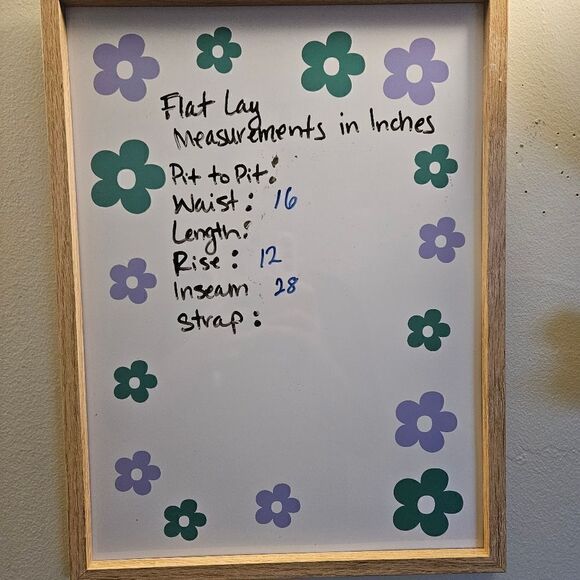 Flat Lay
Measurements in Inches
Pit to Pit:
Waist: 16
Length:
Rise: 12
Inseam 28
Strap: